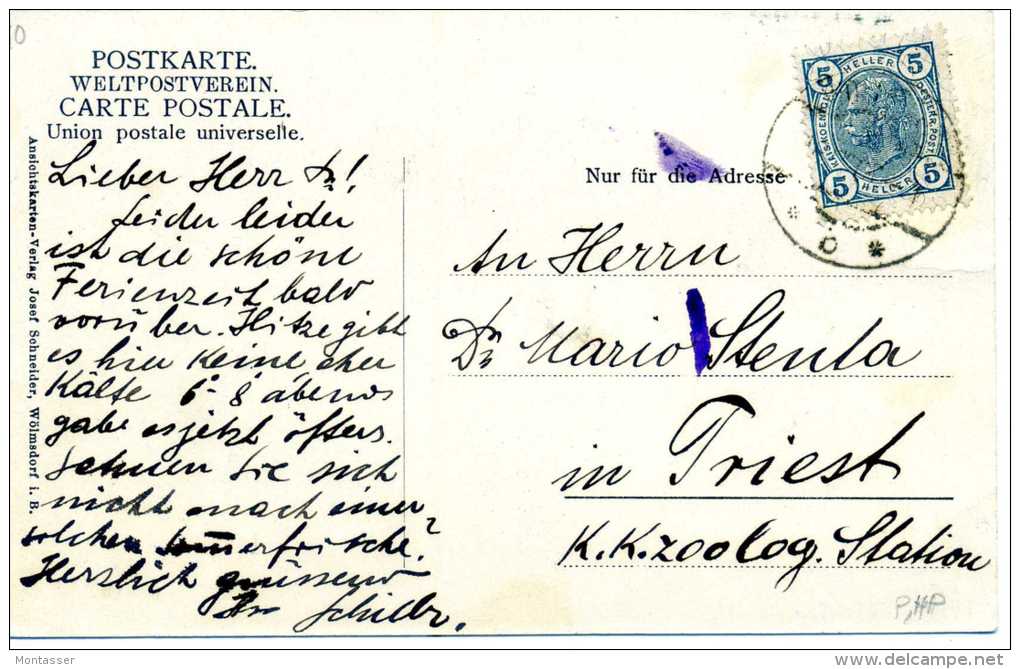 POSTKARTE.
WELTPOSTVEREIN.
CARTE POSTALE.
Union postale universelle.
Ansichtskarten-Verlag Josef Schneider, Wölmsdorf i. B.
Lieber Herr Dr!
Leider leider
ist die schöne
Ferienzeit bald
vorüber. Hitze gibt
es hier keine eher
Kälte 6-8 abends
gabe es jetzt öfters.
Sehnen Sie sich
nicht nach einer
solchen Sommerfrische?
Herzlich grüssend
Ihr
Nur für die Adresse
An Herrn
Dr Mario Stenta
in Triest
K.K. zoolog. Station
5 HELLER 5
KAISKOENIGL OESTERR. POST.
5 HELLER 5
a
P, HP
Montasser
delcampe.net